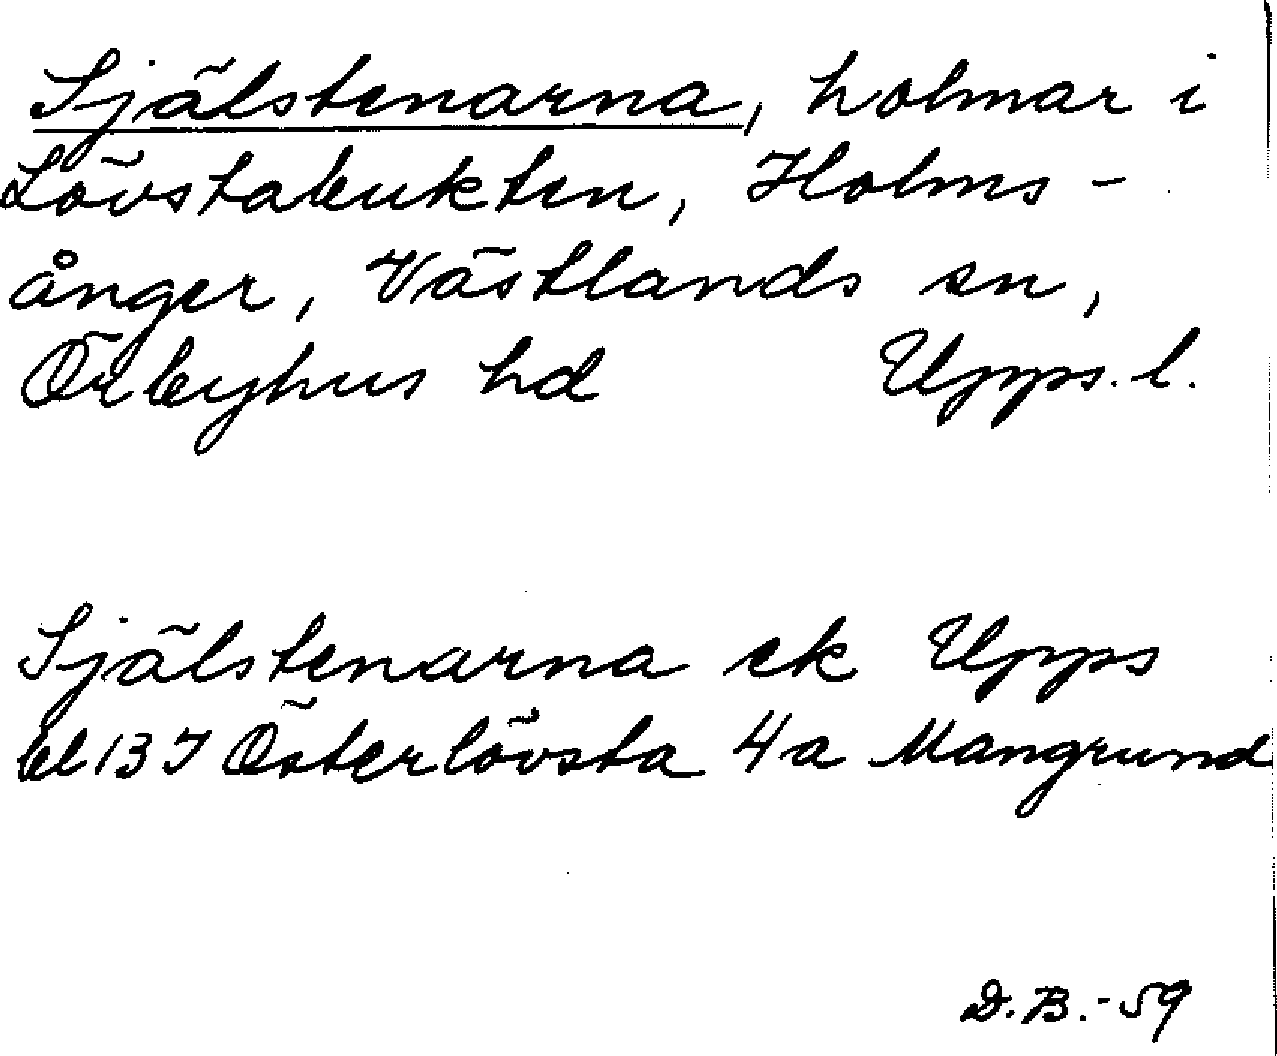 Själstenarna, holmar i
Lövstabukten, Holms-
ånger, Västlands sn,
Örbyhus hd Upps. l.
Själstenarna ek Upps
bl 13 I Österlövsta 4a Mangrund
D.B.-59